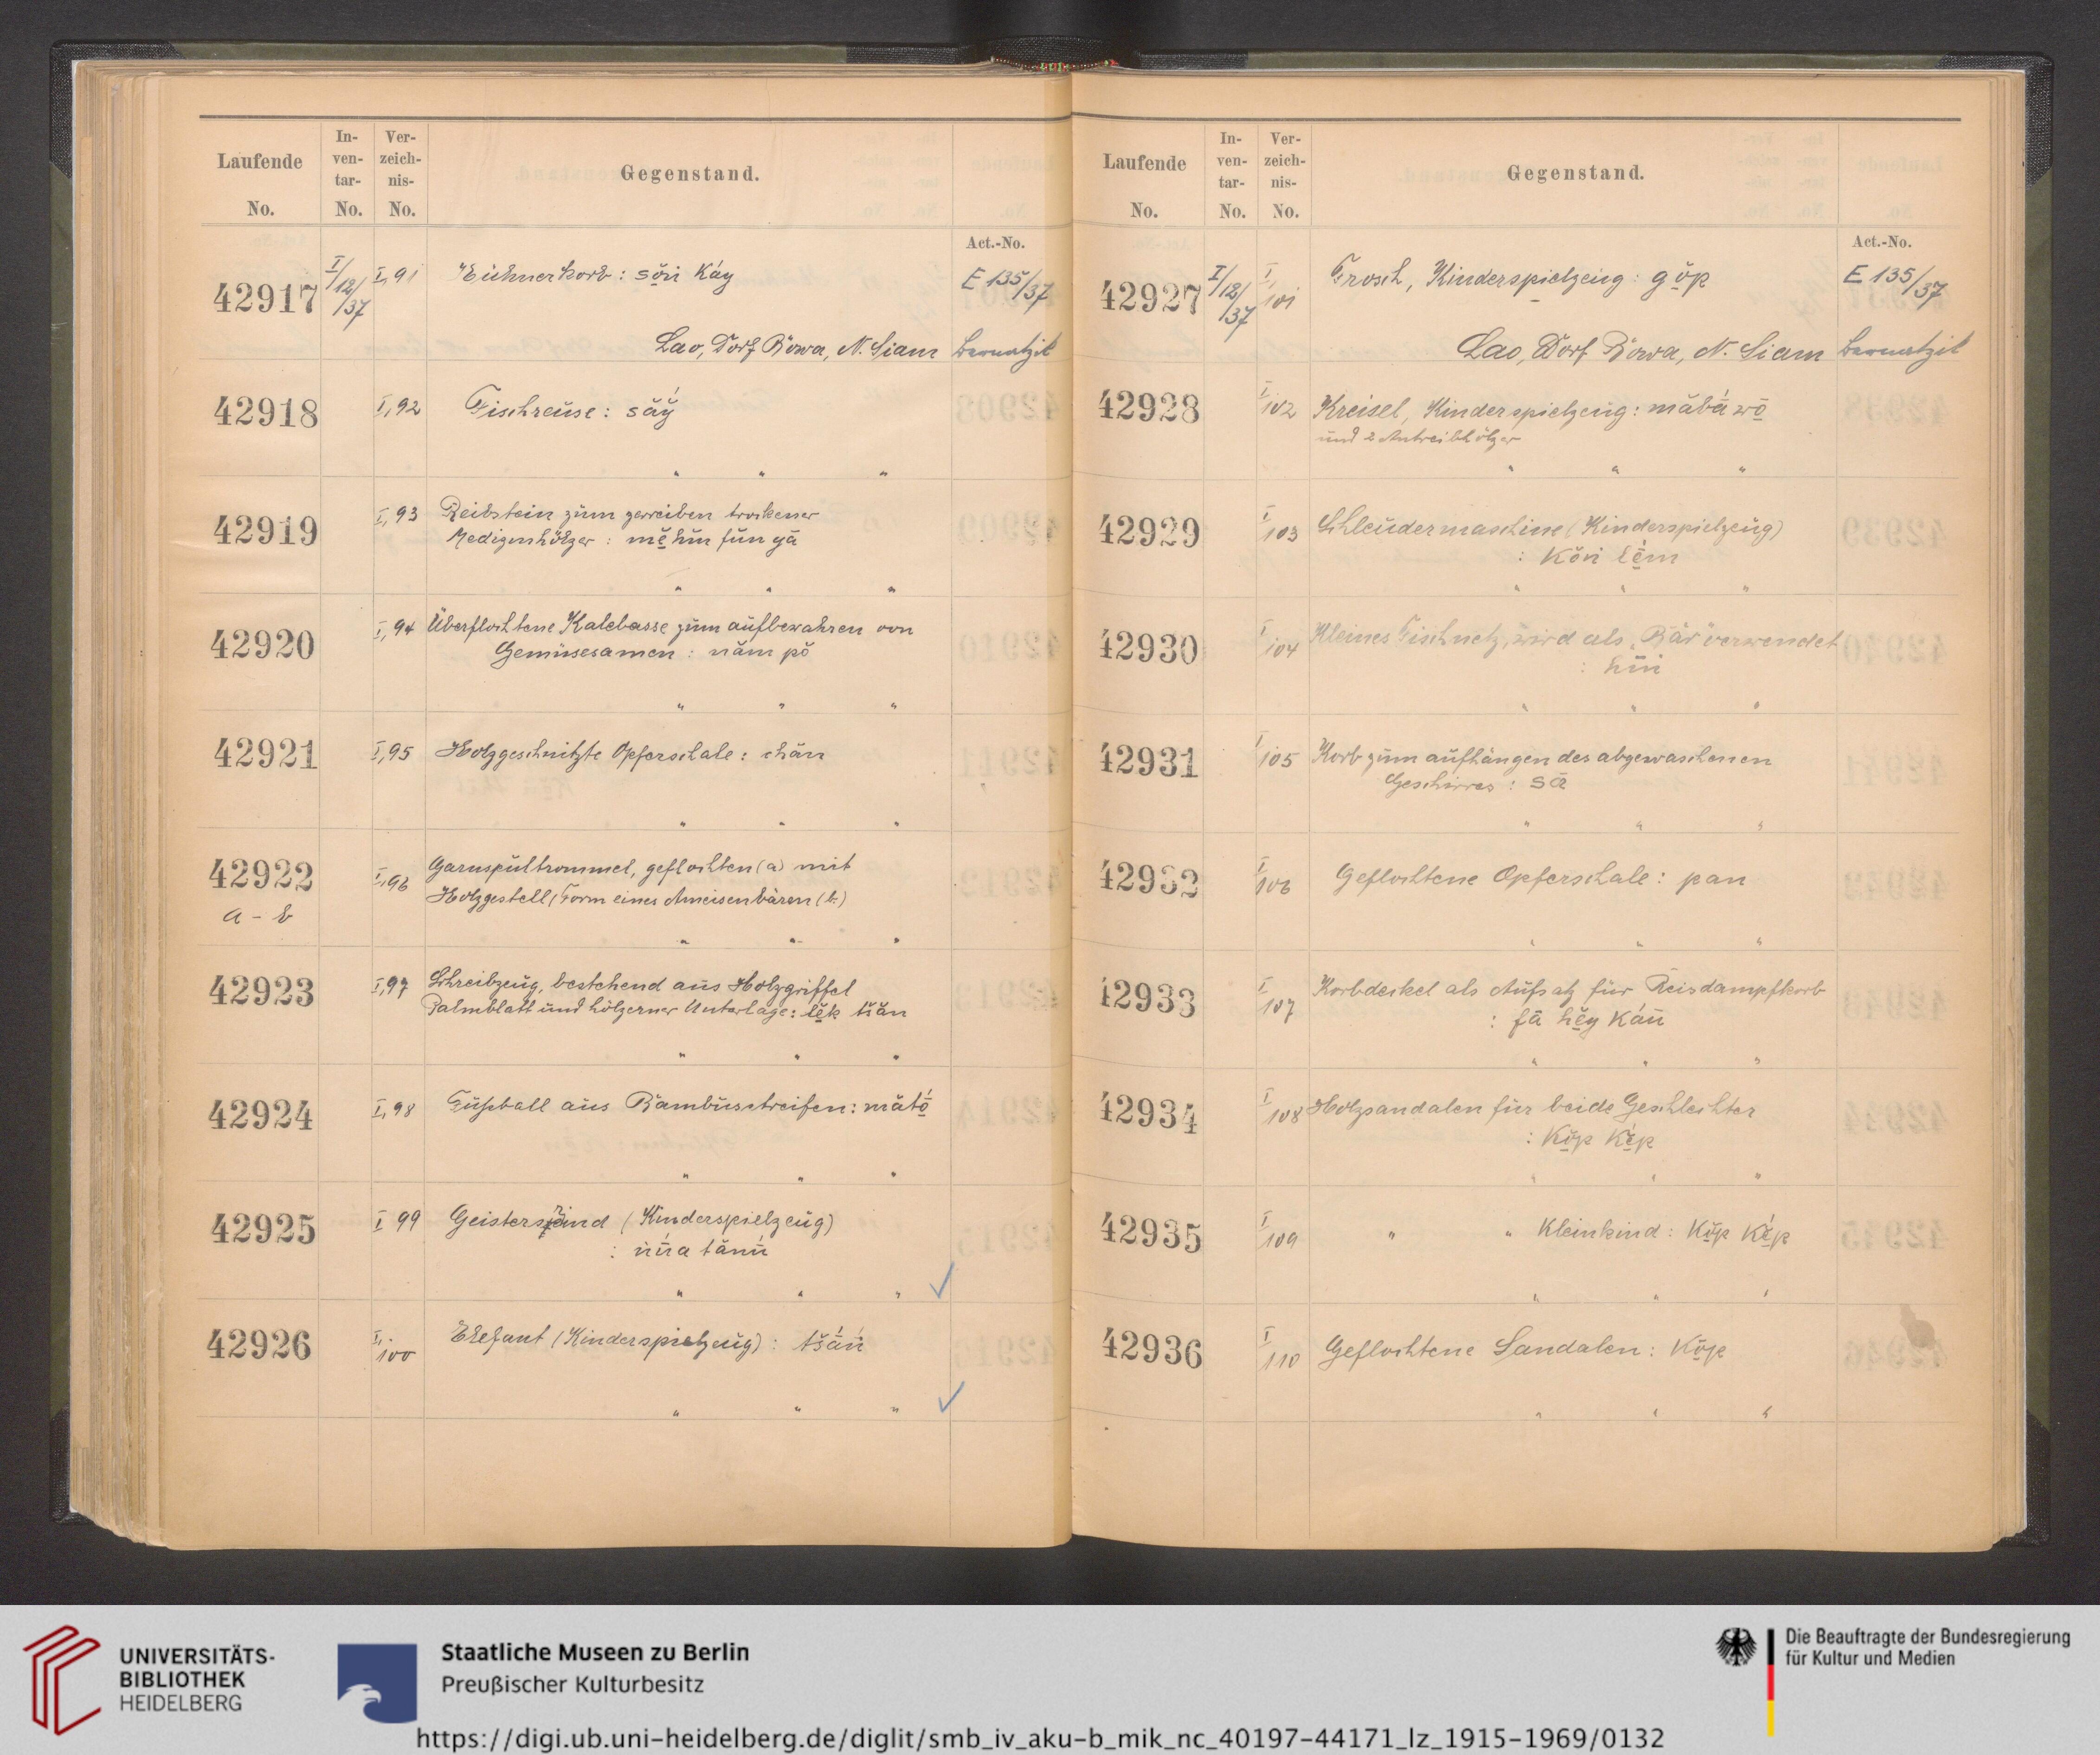 Laufende No.
In-ven-tar-No.
Ver-zeich-nis-No.
Gegenstand.
Act.-No.
42917 I/12/37 I,91 Hühnerkorb: sŏn Káy E 135/37
Lao, Dorf Bowa, N. Siam Bernatzik
42918 I,92 Fischreuse: sắy̆
" " "
42919 I,93 Reibstein zum zerreiben trockener
Medizinhölzer: mĕ hīn fŭn yā
" " "
42920 I,94 Überflochtene Kalebasse zum aufbewahren von
Gemüsesamen: năm pŏ
" " "
42921 I,95 Holzgeschnitzte Opferschale: chăn
" " "
42922 I,96 Garnspultrommel, geflochten (a) mit
a-b Holzgestell (Form eines Ameisenbären (b)
" " "
42923 I,97 Schreibzeug, bestehend aus Holzgriffel
Palmblatt und hölzerner Unterlage: lĕk tšăn
" " "
42924 I,98 Fußball aus Bambusstreifen: mătŏ
" " "
42925 I 99 Geister (Kinderspielzeug)
: nūa tănū
" " "
42926 I,100 Elefant (Kinderspielzeug): tšān
" " "
Laufende No.
In-ven-tar-No.
Ver-zeich-nis-No.
Gegenstand.
Act.-No.
42927 I/12/37 I,101 Frosch, Kinderspielzeug: gŏp E 135/37
Lao, Dorf Bowa, N. Siam Bernatzik
42928 I,102 Kreisel, Kinderspielzeug: măbā wō
und 2 Antreibhölzer
" " "
42929 I 103 Schleudermaschine (Kinderspielzeug)
: Kŏn lēm
" " "
42930 I 104 Kleines Fischnetz, wird als "Bär" verwendet
: hīn
" " "
42931 I 105 Korb zum aufhängen des abgewaschenen
Geschirres: sā
" " "
42932 I 106 Geflochtene Opferschale: pan
" " "
42933 I 107 Korbdeckel als Aufsatz für Reisdampfkorb
: fā hĕy Káu
" " "
42934 I 108 Holzsandalen für beide Geschlechter
: Kŏp Kĕp
" " "
42935 I 109 " " Kleinkind: Kŏp Kĕp
" " "
42936 I 110 Geflochtene Sandalen: Kŏp
" " "
UNIVERSITÄTS-
BIBLIOTHEK
HEIDELBERG
Staatliche Museen zu Berlin
Preußischer Kulturbesitz
Die Beauftragte der Bundesregierung
für Kultur und Medien
https://digi.ub.uni-heidelberg.de/diglit/smb_iv_aku-b_mik_nc_40197-44171_lz_1915-1969/0132